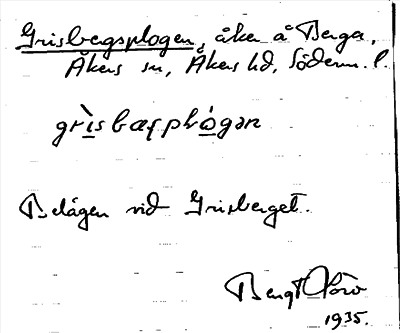 Grisbergsplogen, åker å Berga,
Åkers sn, Åkers hd, Söderm. l.
grìsbærsplɷ̀gən
Belägen vid Grisberget.
Bengt
1935.